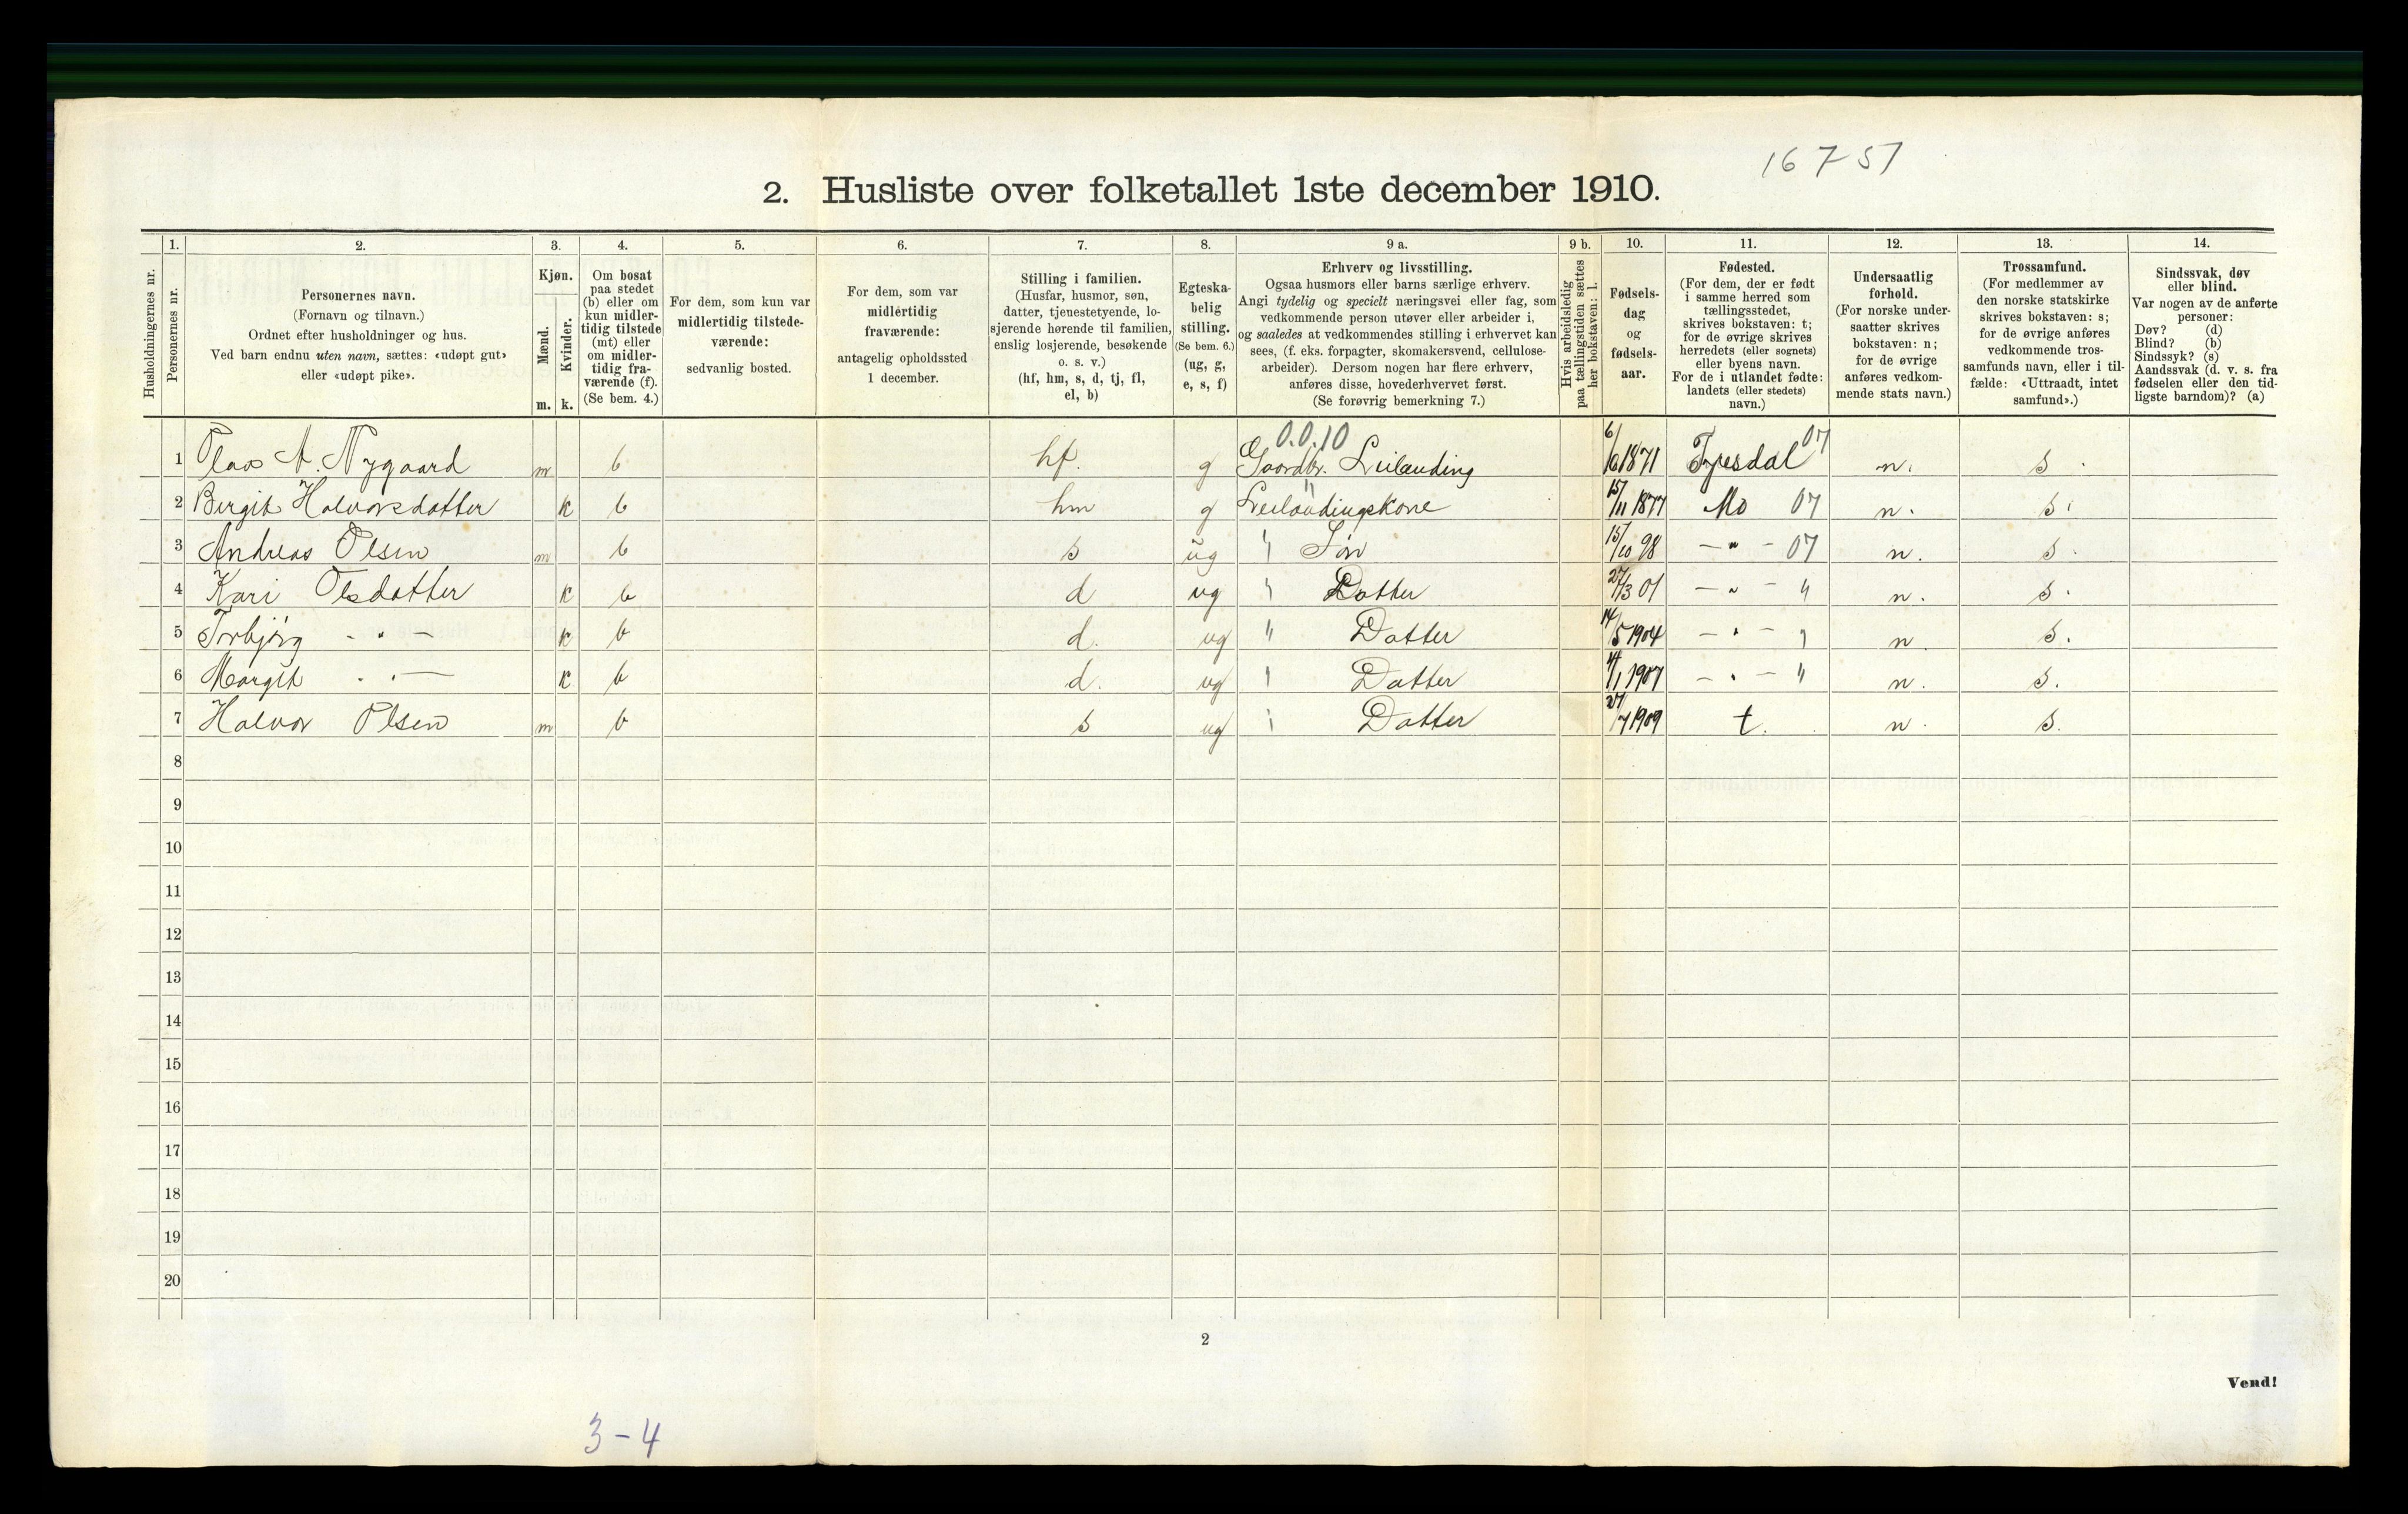 16751
2. Husliste over folketallet 1ste december 1910.
Husholdningernes nr.
1. Personernes nr.
2. Personernes navn.
(Fornavn og tilnavn.)
Ordnet efter husholdninger og hus.
Ved barn endnu uten navn, sættes: «udøpt gut»
eller «udøpt pike».
3. Kjøn.
Mænd. m.
Kvinder. k.
4. Om bosat
paa stedet
(b) eller om
kun midler-
tidig tilstede
(mt) eller
om midler-
tidig fra-
værende (f).
(Se bem. 4.)
5. For dem, som kun var
midlertidig tilstede-
værende:
sedvanlig bosted.
6. For dem, som var
midlertidig
fraværende:
antagelig opholdssted
1 december.
7. Stilling i familien.
(Husfar, husmor, søn,
datter, tjenestetyende, lo-
sjerende hørende til familien,
enslig losjerende, besøkende
o. s. v.)
(hf, hm, s, d, tj, fl,
el, b)
8. Egteska-
belig
stilling.
(Se bem. 6.)
(ug, g,
e, s, f)
9 a. Erhverv og livsstilling.
Ogsaa husmors eller barns særlige erhverv.
Angi tydelig og specielt næringsvei eller fag, som
vedkommende person utøver eller arbeider i,
og saaledes at vedkommendes stilling i erhvervet kan
sees, (f. eks. forpagter, skomakersvend, cellulose-
arbeider). Dersom nogen har flere erhverv,
anføres disse, hovederhvervet først.
(Se forøvrig bemerkning 7.)
9 b. Hvis arbeidsledig
paa tællingstiden sættes
her bokstaven: l.
10. Fødsels-
dag
og
fødsels-
aar.
11. Fødested.
(For dem, der er født
i samme herred som
tællingsstedet,
skrives bokstaven: t;
for de øvrige skrives
herredets (eller sognets)
eller byens navn.
For de i utlandet fødte:
landets (eller stedets)
navn.)
12. Undersaatlig
forhold.
(For norske under-
saatter skrives
bokstaven: n;
for de øvrige
anføres vedkom-
mende stats navn.)
13. Trossamfund.
(For medlemmer av
den norske statskirke
skrives bokstaven: s;
for de øvrige anføres
vedkommende tros-
samfunds navn, eller i til-
fælde: «Uttraadt, intet
samfund».)
14. Sindssvak, døv
eller blind.
Var nogen av de anførte
personer:
Døv? (d)
Blind? (b)
Sindssyk? (s)
Aandssvak (d. v. s. fra
fødselen eller den tid-
ligste barndom)? (a)
0.0.10
1 Olav A. Nygaard m b hf. g Gaardbr. Leilænding 6/6 1871 Fyresdal 07 n. s.
2 Bergit Halvorsdatter k b hm g Leilændingskone 15/11 1877 Mo 07 n. s.
3 Andreas Olsen m b s ug " Søn 15/10 98 - " - 07 n. s.
4 Kari Olsdatter k b d ug " Datter 27/3 01 - " - " n. s.
5 Torbjørg - " - k b d. ug " Datter 14/5 1904 - " - " n. s.
6 Margit - " - k b d. ug " Datter 4/1 1907 - " - " n. s.
7 Halvor Olsen m b s ug " Datter 27/7 1909 t. n. s.
8
9
10
11
12
13
14
15
16
17
18
19
20
2
Vend!
3-4